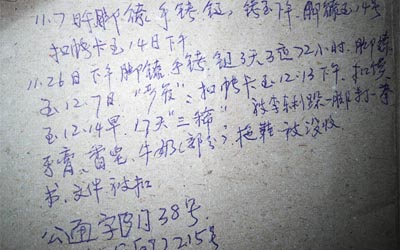 11.7日午脚镣,手铐链,铐至下午,脚镣至14号
扣帐卡至14日下午
11.26日下午脚镣手铐,链3天3夜72小时.脚镣
至12.7日,"劳友":扣帐卡至12.13下午.扣
至12.14早.17天"三稀" 被李利踩一脚打一拳
牙膏、香皂、牛奶(部分)拖鞋被没收
书.文件被扣
公通字 月38号
215号